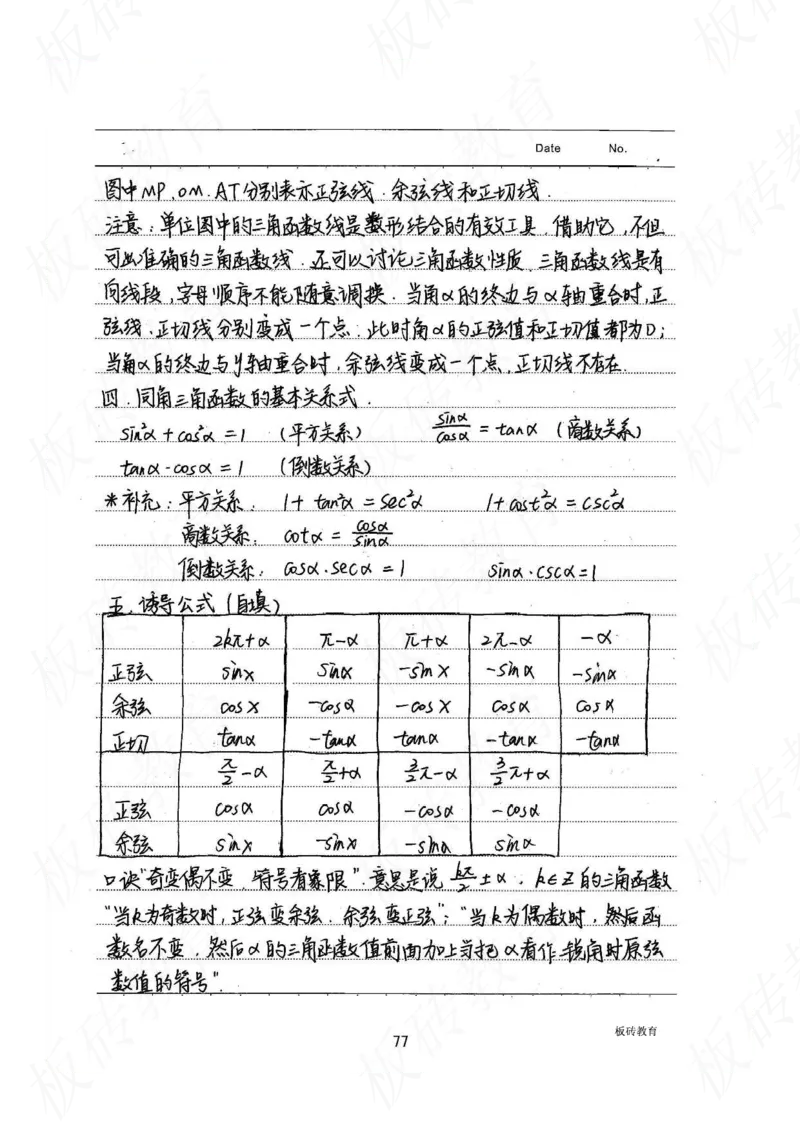 Date No.
图中MP.OM.AT分别表示正弦线.余弦线和正切线.
注意:单位圆中的三角函数线是数形结合的有效工具.借助它,不但
可以准确的三角函数线.还可以讨论三角函数性质.三角函数线是有
向线段,字母顺序不能随意调换.当角α的终边与α轴重合时,正
弦线.正切线分别变成一个点.此时角α的正弦值和正切值都为0;
当角α的终边与y轴重合时,余弦线变成一个点,正切线不存在.
四.同角三角函数的基本关系式.
sin²α + cos²α = 1 (平方关系) sinα/cosα = tanα (商数关系)
tanα·cosα = 1 (倒数关系)
*补充:平方关系: 1+ tan²α = sec²α 1+ cost²α = csc²α
商数关系: cotα = cosα/sinα
倒数关系: cosα·secα = 1 sinα·cscα = 1
五.诱导公式(自填)
2kπ+α π-α π+α 2π-α -α
正弦 sinx sinα -sinx -sinα -sinα
余弦 cosx -cosα -cosx cosα cosα
正切 tanα -tanα tanα -tanx -tanα
π/2-α π/2+α 3/2π-α 3/2π+α
正弦 cosα cosα -cosα -cosα
余弦 sinx -sinx -sinα sinα
口诀"奇变偶不变,符号看象限".意思是说 kπ/2 ± α, k∈Z的三角函数
"当k为奇数时,正弦变余弦.余弦变正弦";"当k为偶数时,然后函
数名不变,然后α的三角函数值前面加上当把α看作锐角时原弦
数值的符号".
板砖教育
77